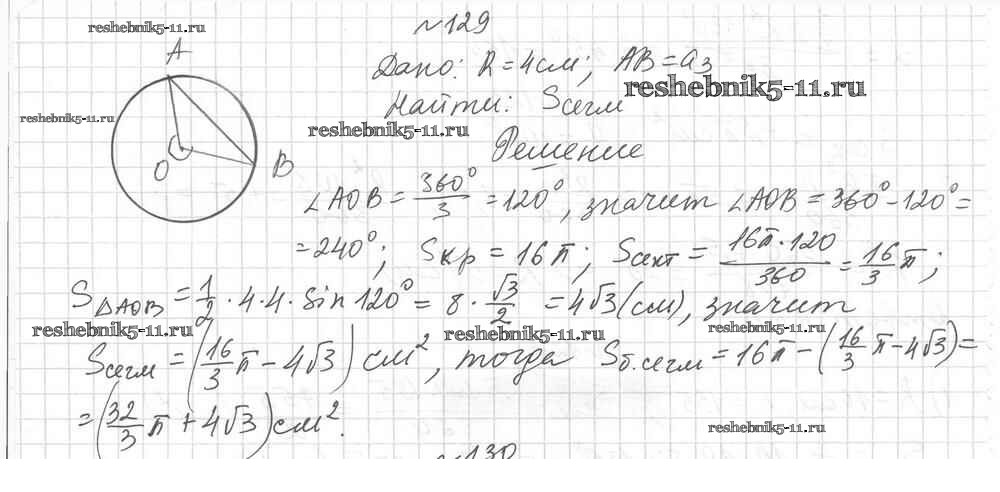 №129
reshebnik5-11.ru
A
Дано: R = 4см; AB = a₃
reshebnik5-11.ru
Найти: Sсегм
reshebnik5-11.ru
reshebnik5-11.ru
Решение
O
B
∠AOB = 360°/3 = 120°, значит ∠AOB = 360° - 120° =
= 240°; Sкр = 16π; Sсект = 16π·120/360 = 16/3 π;
S△AOB = 1/2 · 4 · 4 · Sin 120° = 8 · √3/2 = 4√3 (см), значит
reshebnik5-11.ru
reshebnik5-11.ru
reshebnik5-11.ru
Sсегм = (16/3 π - 4√3) см², тогда Sб.сегм = 16π - (16/3 π - 4√3) =
= (32/3 π + 4√3) см².
reshebnik5-11.ru
№130